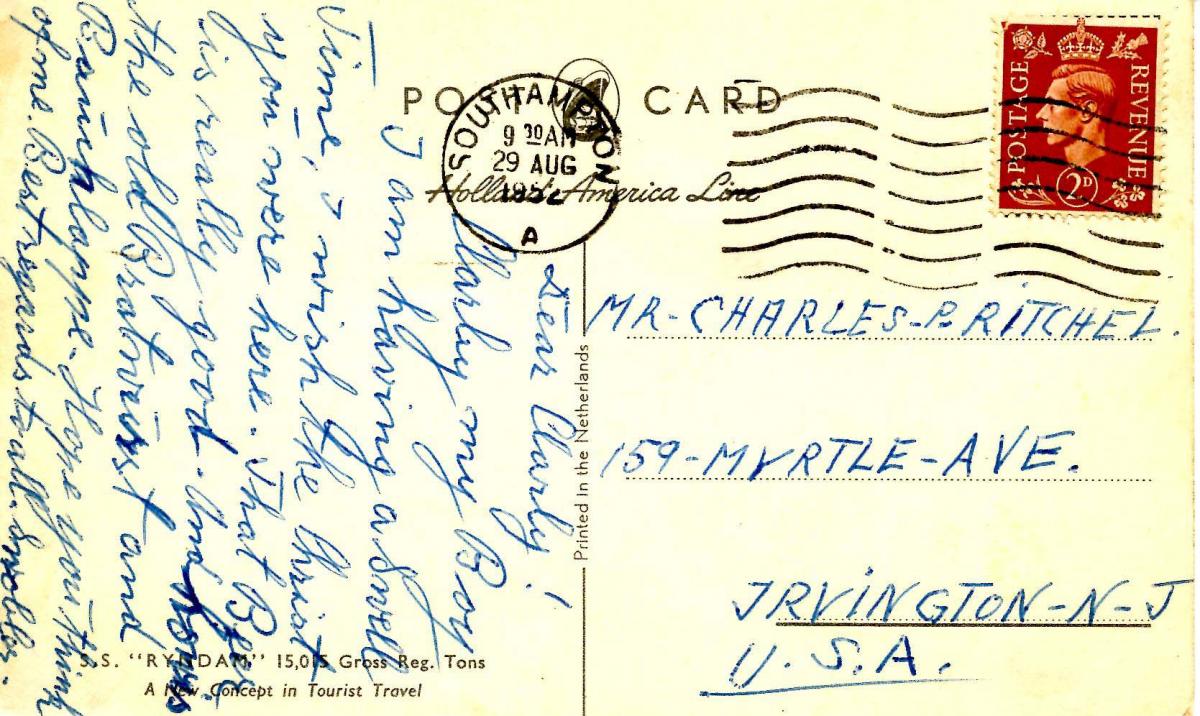 POST CARD
Holland-America Line
SOUTHAMPTON
9 30 AM
29 AUG
195
A
POSTAGE
REVENUE
2D
Dear Charly!
Charly my Boy
I am having a swell
Time, I wish the Christ
you were here. That Beer
is really good. And how is
the old Bratwurst and
Bauchlappe. Hope you think
of me. Best regards to all.
MR-CHARLES-P. RITCHEL.
159-MYRTLE-AVE.
IRVINGTON-N-J
U.S.A.
Printed in the Netherlands
S.S. "RYNDAM" 15,015 Gross Reg. Tons
A New Concept in Tourist Travel